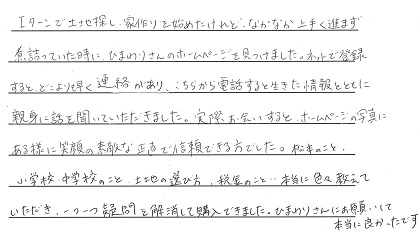 Iターンで土地探し、家作りを始めたけれど、なかなか上手く進まず
煮詰っていた時に、ひまわりさんのホームページを見つけました。ネットで登録
すると、どこよりも早く連絡があり、こちらから電話すると生きた情報とともに
親身に話を聞いていただきました。実際お会いすると、ホームページの写真に
ある様に笑顔の素敵な正直で信頼できる方でした。松本のこと、
小学校・中学校のこと、土地の選び方、税金のこと…本当に色々教えて
いただき、一つ一つ疑問を解消して購入できました。ひまわりさんにお願いして
本当に良かったです